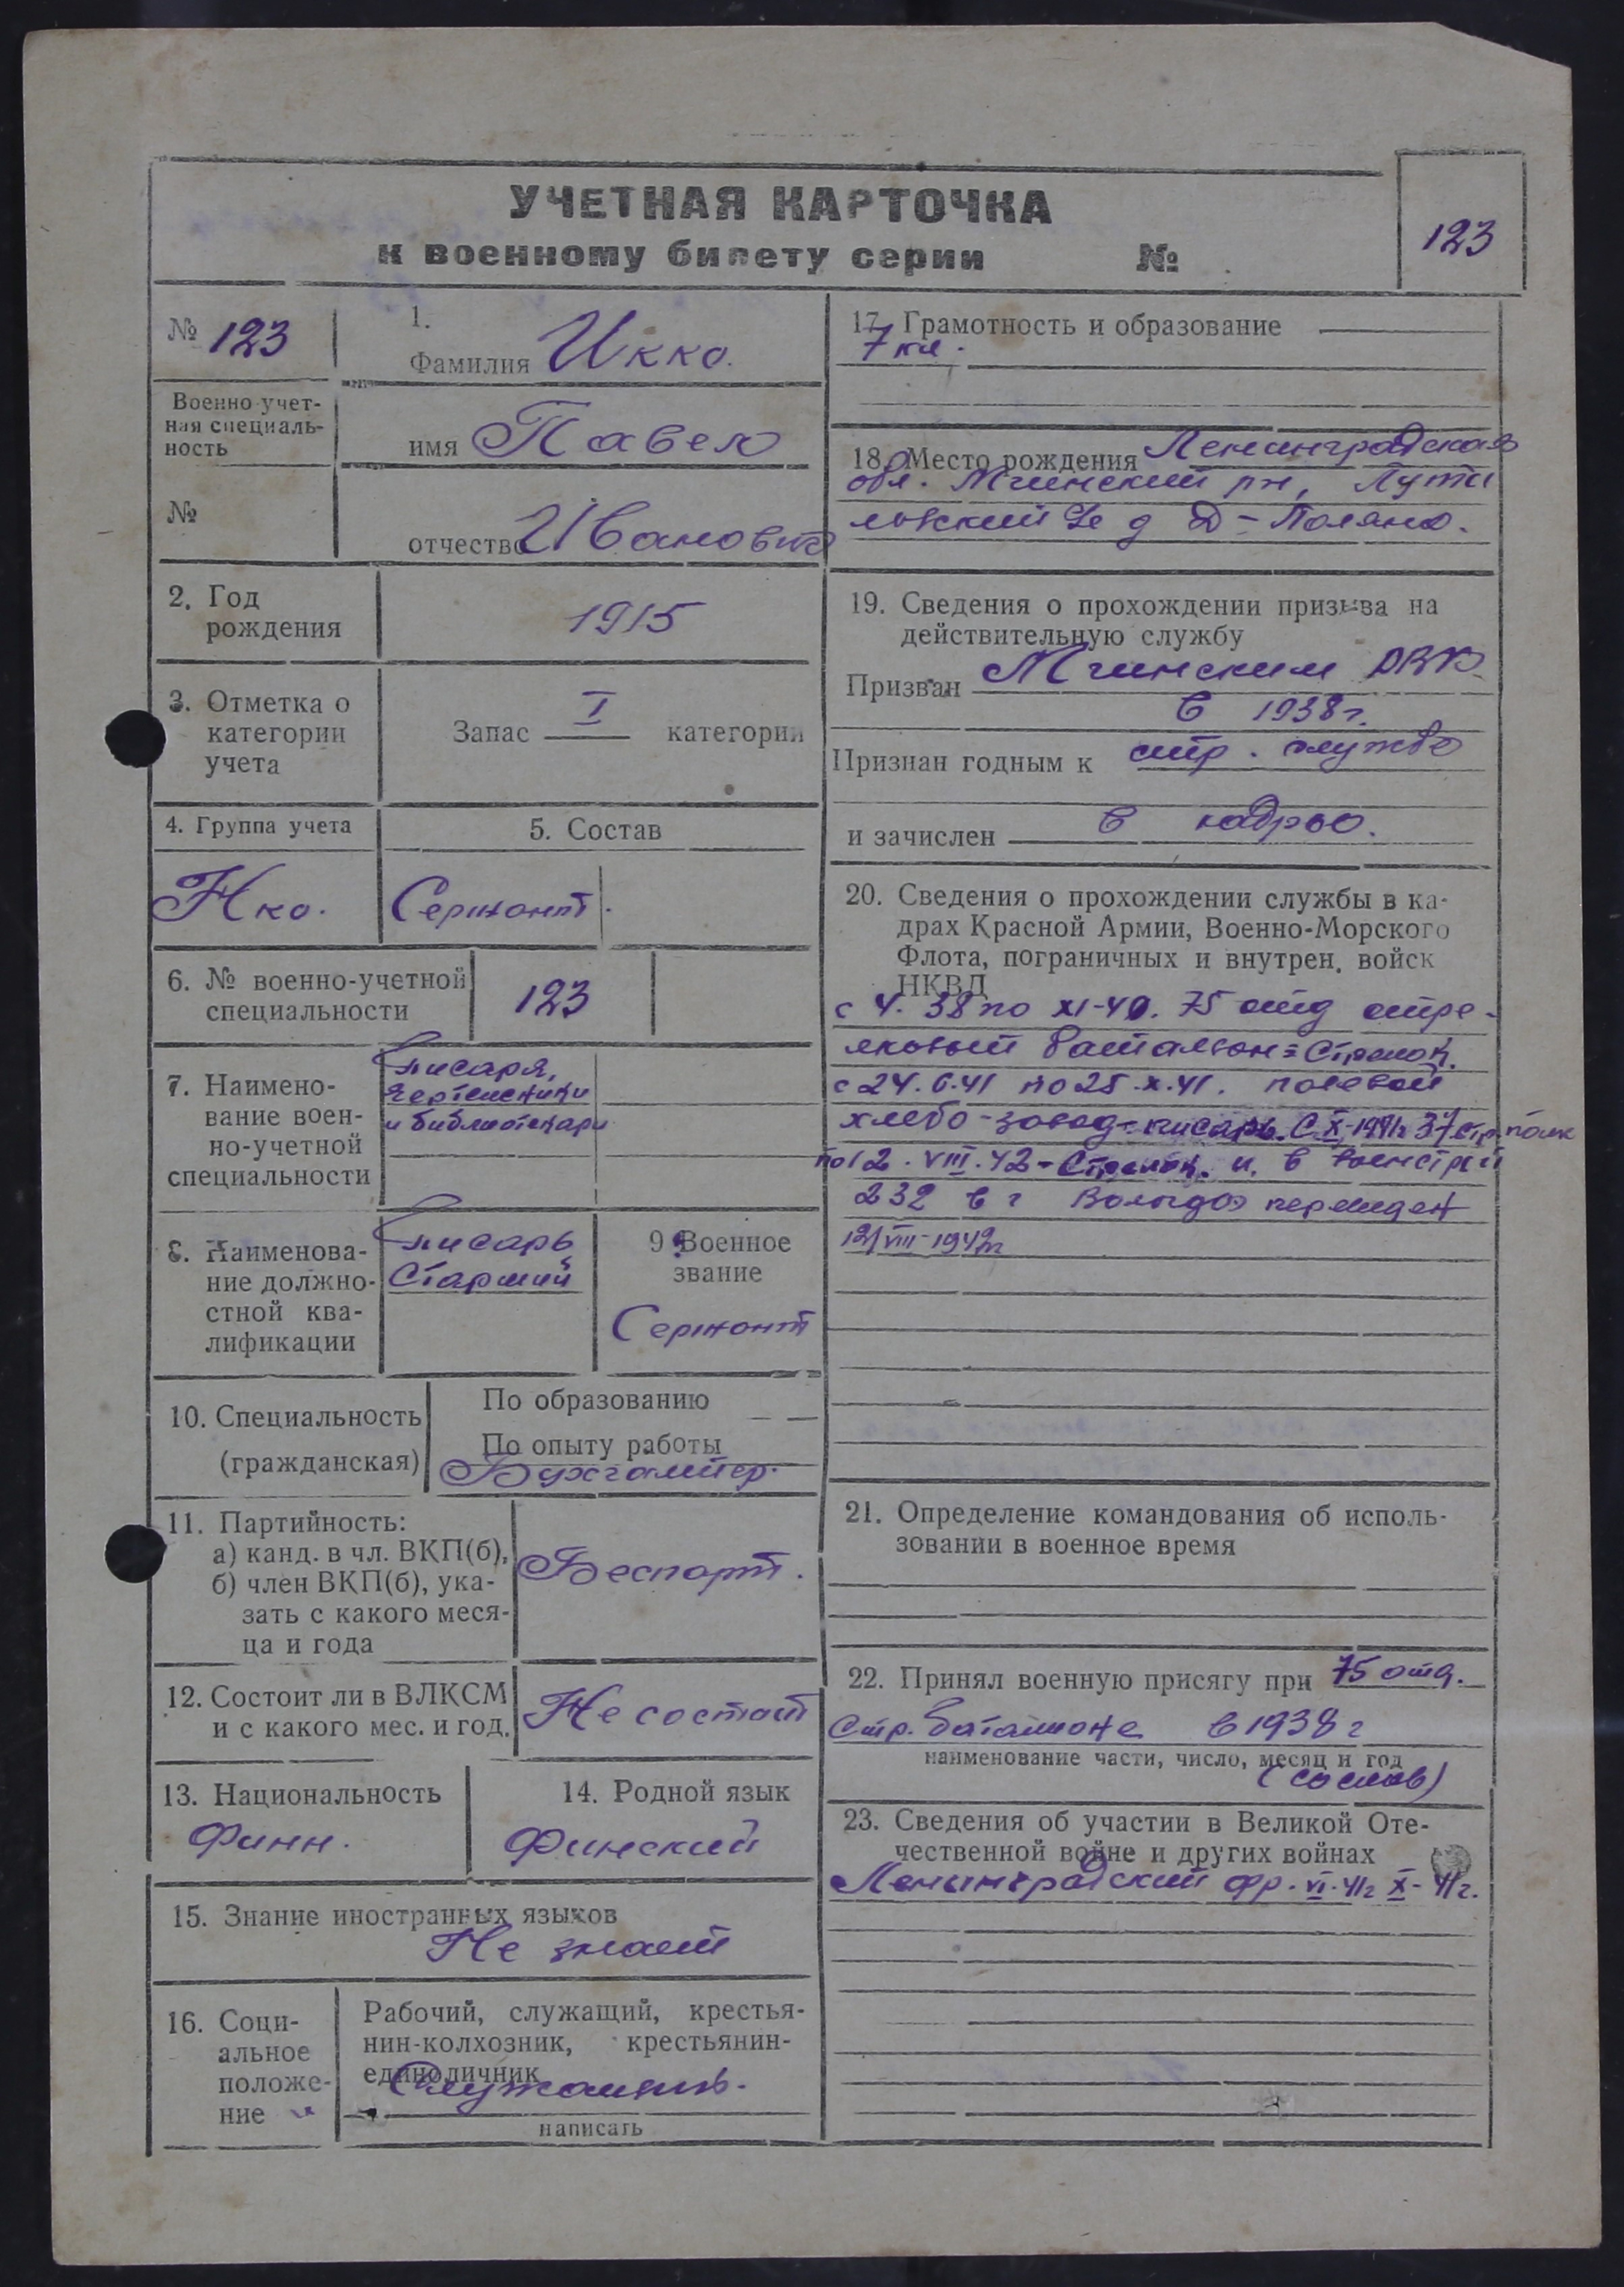 УЧЕТНАЯ КАРТОЧКА
к военному билету серии №
123
№ 123
1.
Фамилия Икко.
Военно-учет-
ная специаль-
ность
имя Павел
№
отчество Иванович
2. Год
рождения
1915
3. Отметка о
категории
учета
Запас I категории
4. Группа учета
5. Состав
Нко.
Сержант.
6. № военно-учетной
специальности
123
7. Наимено-
вание воен-
но-учетной
специальности
писаря,
чертежники
и библиотекари
8. Наименова-
ние должно-
стной ква-
лификации
писарь
Старший
9. Военное
звание
Сержант
10. Специальность
(гражданская)
По образованию — —
По опыту работы
Бухгалтер.
11. Партийность:
а) канд. в чл. ВКП(б),
б) член ВКП(б), ука-
зать с какого меся-
ца и года
Беспарт.
12. Состоит ли в ВЛКСМ
и с какого мес. и год.
Не состоит
13. Национальность
Финн.
14. Родной язык
Финский
15. Знание иностранных языков
Не знает
16. Соци-
альное
положе-
ние
Рабочий, служащий, крестья-
нин-колхозник, крестьянин-
единоличник
Служащий.
написать
17. Грамотность и образование
7 кл.
18. Место рождения Ленинградская
обл. Мгинский рн, Пути
ловский д Д-Поляна.
19. Сведения о прохождении призыва на
действительную службу
Призван Мгинским РВК
в 1938г.
Признан годным к стр. службе
и зачислен в кадры.
20. Сведения о прохождении службы в ка-
драх Красной Армии, Военно-Морского
Флота, пограничных и внутрен. войск
НКВД
с 4. 38 по XI-40. 75 отд стре-
лковый батальон = Стрелок.
с 24.6.41 по 25.X.41. полевой
хлебо-завод-писарь. С X-1941г 37 стр. полк
по 12.VIII.42 - Стрелок. и в
232 в г Вологда передан
12/VIII-1942г
21. Определение командования об исполь-
зовании в военное время
22. Принял военную присягу при 75 отд.
Стр. баталионе в 1938 г
наименование части, число, месяц и год
(со слов)
23. Сведения об участии в Великой Оте-
чественной войне и других войнах
Ленинградский фр. VI-41г X-41г.